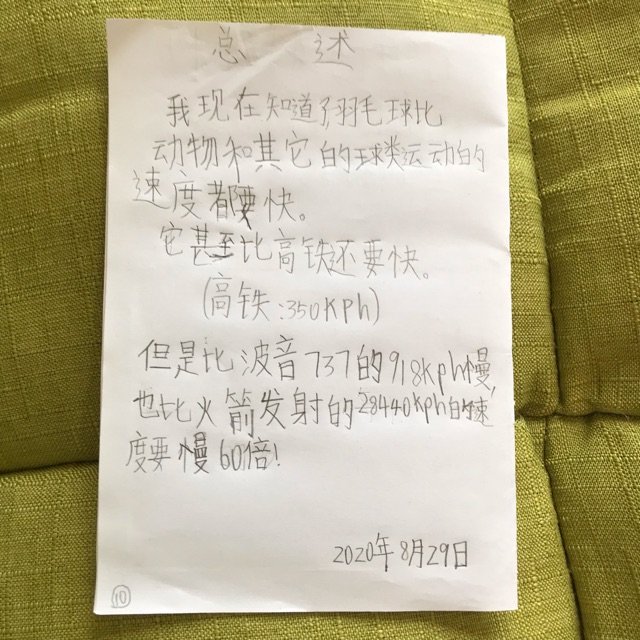 总 述
我现在知道了羽毛球比
动物和其它的球类运动的
速度都要快。
它甚至比高铁还要快。
(高铁:350kph)
但是比波音737的918kph慢,
也比火箭发射的28440kph的速
度要慢60倍!
2020年8月29日
10